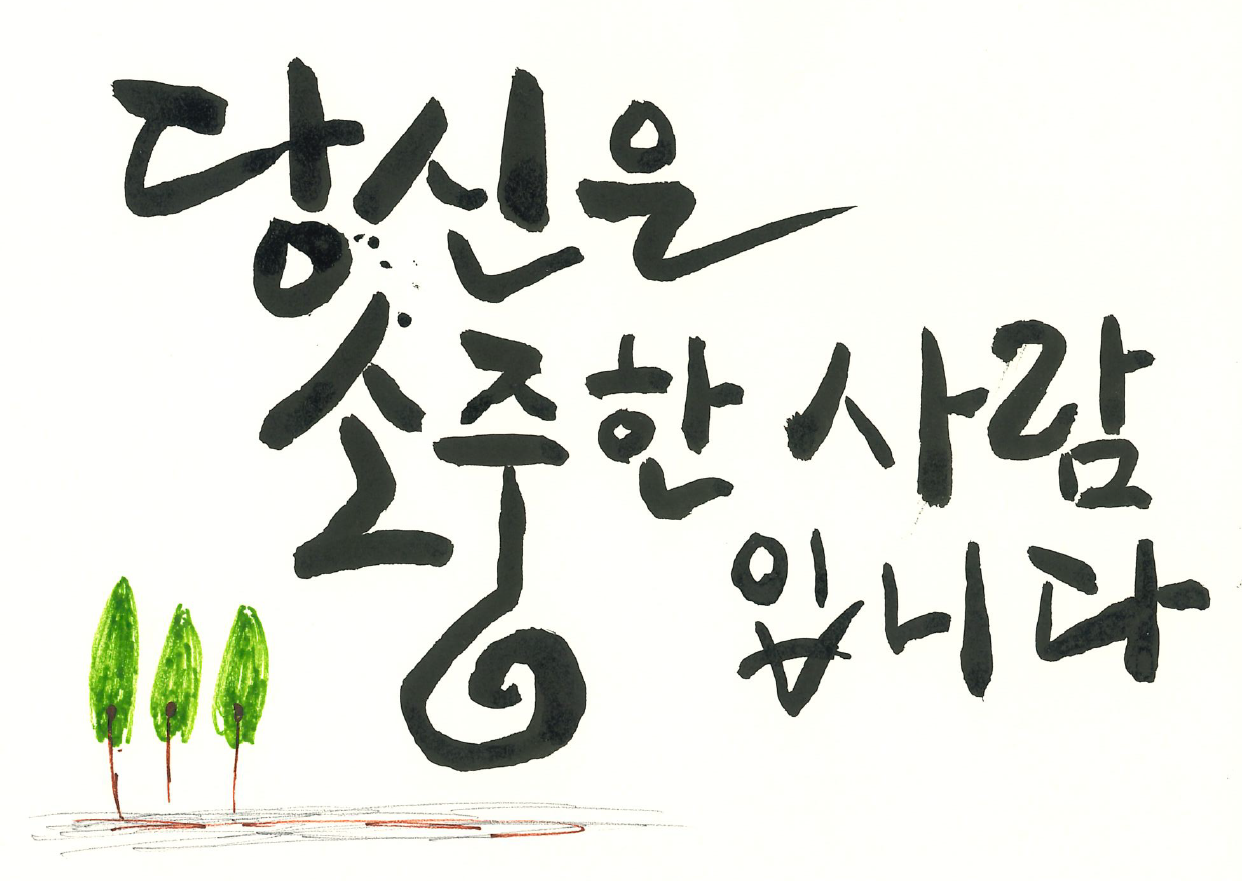 당신은
소중한 사람
입니다